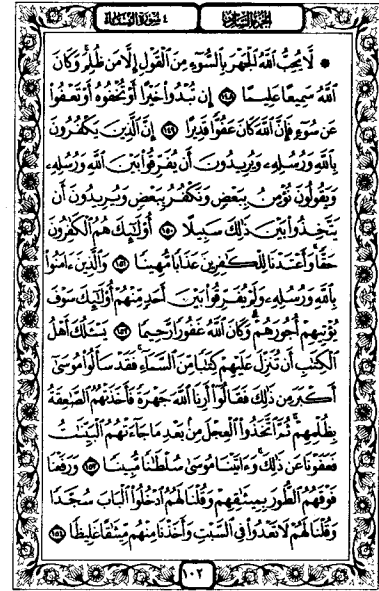 الجزء السادس
٤ سورة النساء
* لَّا يُحِبُّ اللَّهُ الْجَهْرَ بِالسُّوءِ مِنَ الْقَوْلِ إِلَّا مَن ظُلِمَ وَكَانَ
اللَّهُ سَمِيعًا عَلِيمًا ١٤٨ إِن تُبْدُوا خَيْرًا أَوْ تُخْفُوهُ أَوْ تَعْفُوا
عَن سُوءٍ فَإِنَّ اللَّهَ كَانَ عَفُوًّا قَدِيرًا ١٤٩ إِنَّ الَّذِينَ يَكْفُرُونَ
بِاللَّهِ وَرُسُلِهِ وَيُرِيدُونَ أَن يُفَرِّقُوا بَيْنَ اللَّهِ وَرُسُلِهِ
وَيَقُولُونَ نُؤْمِنُ بِبَعْضٍ وَنَكْفُرُ بِبَعْضٍ وَيُرِيدُونَ أَن
يَتَّخِذُوا بَيْنَ ذَٰلِكَ سَبِيلًا ١٥٠ أُولَٰئِكَ هُمُ الْكَٰفِرُونَ
حَقًّا وَأَعْتَدْنَا لِلْكَٰفِرِينَ عَذَابًا مُّهِينًا ١٥١ وَالَّذِينَ ءَامَنُوا
بِاللَّهِ وَرُسُلِهِ وَلَمْ يُفَرِّقُوا بَيْنَ أَحَدٍ مِّنْهُمْ أُولَٰئِكَ سَوْفَ
يُؤْتِيهِمْ أُجُورَهُمْ وَكَانَ اللَّهُ غَفُورًا رَّحِيمًا ١٥٢ يَسْـَٔلُكَ أَهْلُ
الْكِتَٰبِ أَن تُنَزِّلَ عَلَيْهِمْ كِتَٰبًا مِّنَ السَّمَاءِ فَقَدْ سَأَلُوا مُوسَىٰ
أَكْبَرَ مِن ذَٰلِكَ فَقَالُوا أَرِنَا اللَّهَ جَهْرَةً فَأَخَذَتْهُمُ الصَّٰعِقَةُ
بِظُلْمِهِمْ ثُمَّ اتَّخَذُوا الْعِجْلَ مِن بَعْدِ مَا جَاءَتْهُمُ الْبَيِّنَٰتُ
فَعَفَوْنَا عَن ذَٰلِكَ وَءَاتَيْنَا مُوسَىٰ سُلْطَٰنًا مُّبِينًا ١٥٣ وَرَفَعْنَا
فَوْقَهُمُ الطُّورَ بِمِيثَٰقِهِمْ وَقُلْنَا لَهُمُ ادْخُلُوا الْبَابَ سُجَّدًا
وَقُلْنَا لَهُمْ لَا تَعْدُوا فِي السَّبْتِ وَأَخَذْنَا مِنْهُم مِّيثَٰقًا غَلِيظًا ١٥٤
١٠٢